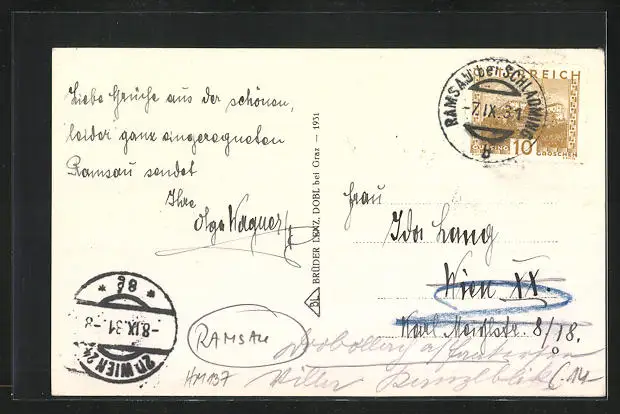 Liebe Grüße aus der schönen,
leider ganz eingeregneten
Ramsau sendet
Ihre
Olga Wagner
BL BRÜDER LENZ, DOBL bei Graz — 1931
RAMSAU bei SCHLADMING
-7.IX.31
b
ÖSTERREICH
GÜSSING
10
GROSCHEN
Frau
Ida Lang
Wien XX.
Karl Meißlstr. 8/18.
* 8g *
-8.IX.31-8
20 WIEN 24
RAMSAU
HM137
Drobollach a/
Villa